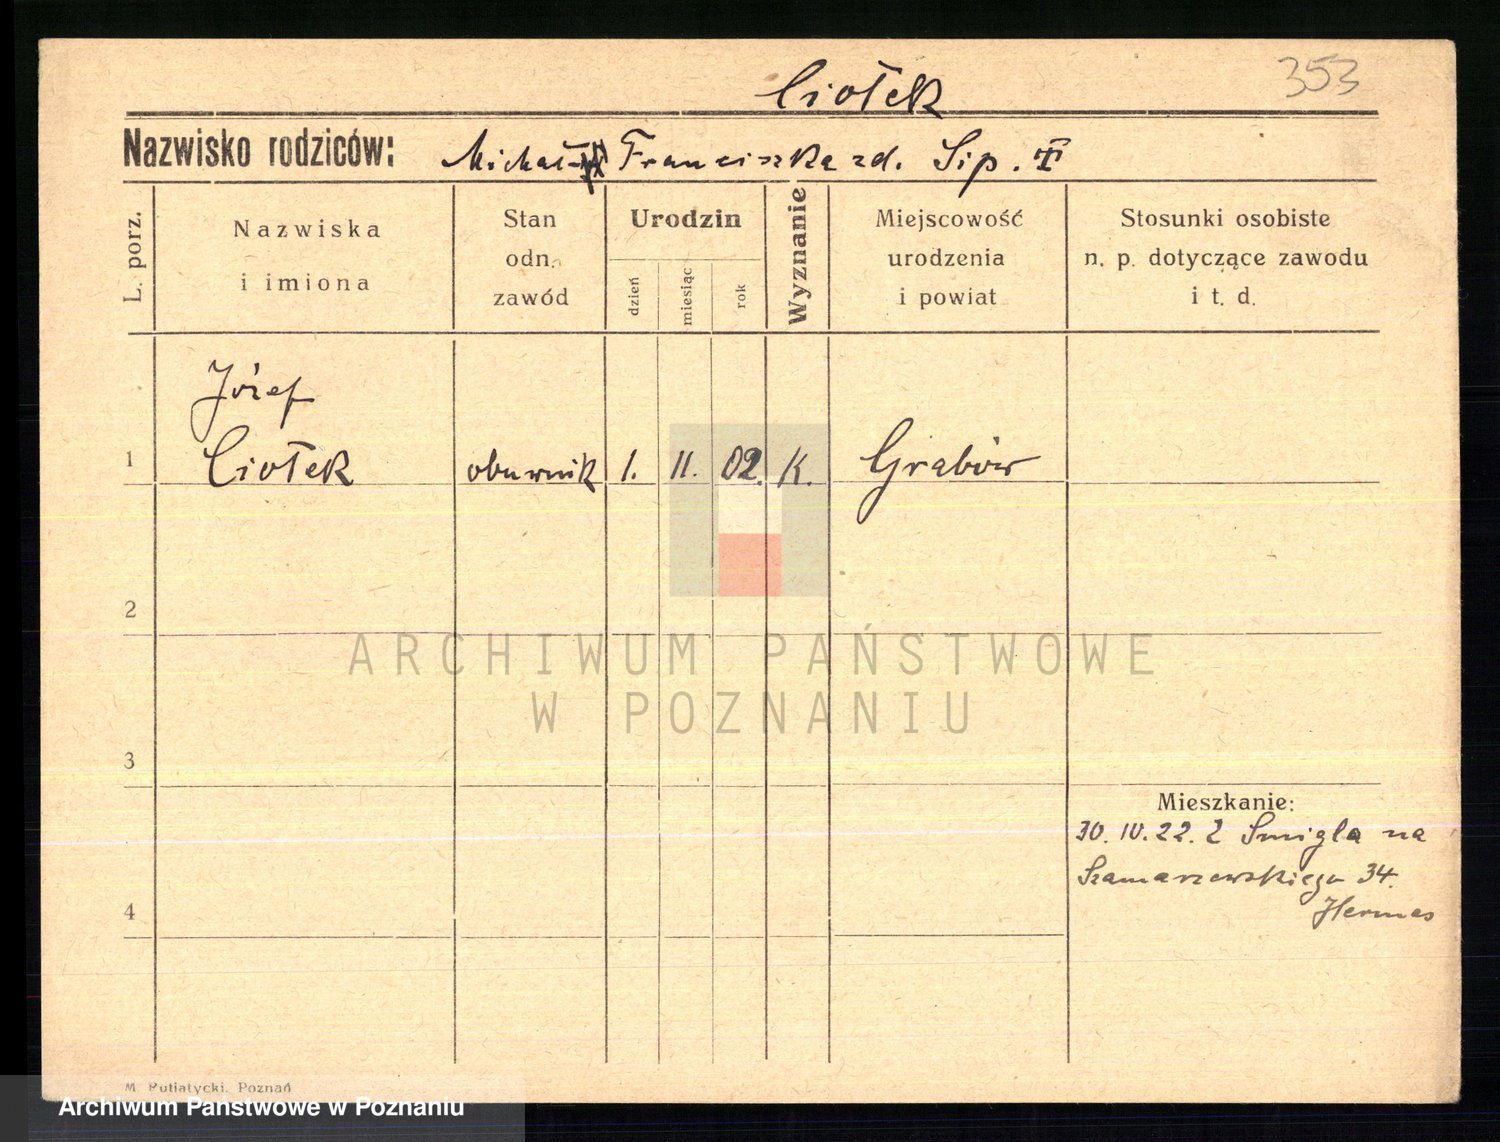 353
Ciołek
Nazwisko rodziców: Michał Franciszka zd. Sip.
L. porz.
Nazwiska
i imiona
Stan
odn.
zawód
Urodzin
dzień
miesiąc
rok
Wyznanie
Miejscowość
urodzenia
i powiat
Stosunki osobiste
n. p. dotyczące zawodu
i t. d.
Józef
1 Ciołek obuwnik 1. 11. 02. K. Grabów
2
ARCHIWUM PAŃSTWOWE
W POZNANIU
3
Mieszkanie:
30. 10. 22. Z Smigla na
Szamarzewskiego 34.
Hermes
4
M. Putiatycki, Poznań
Archiwum Państwowe w Poznaniu